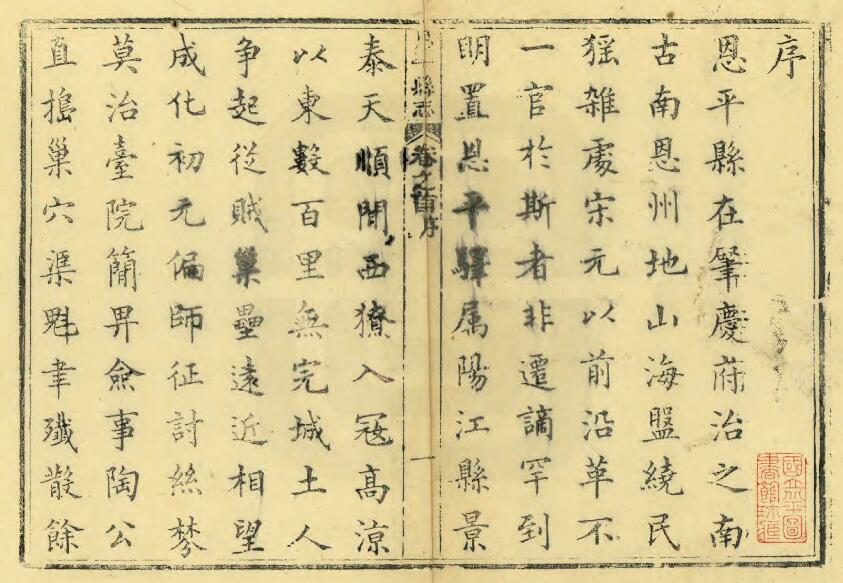 序
恩平縣在肇慶府治之南
古南恩州地山海盤繞民
猺雜處宋元以前沿革不
一官於斯者非遷謫罕到
明置恩平驛属陽江縣景
縣志 卷之首序 一
泰天順間西獠入寇高涼
以東數百里無完城土人
争起從賊巢壘遠近相望
成化初元偏師征討絲棼
莫治臺院簡畀僉事陶公
直搗巢穴渠魁聿殲散餘